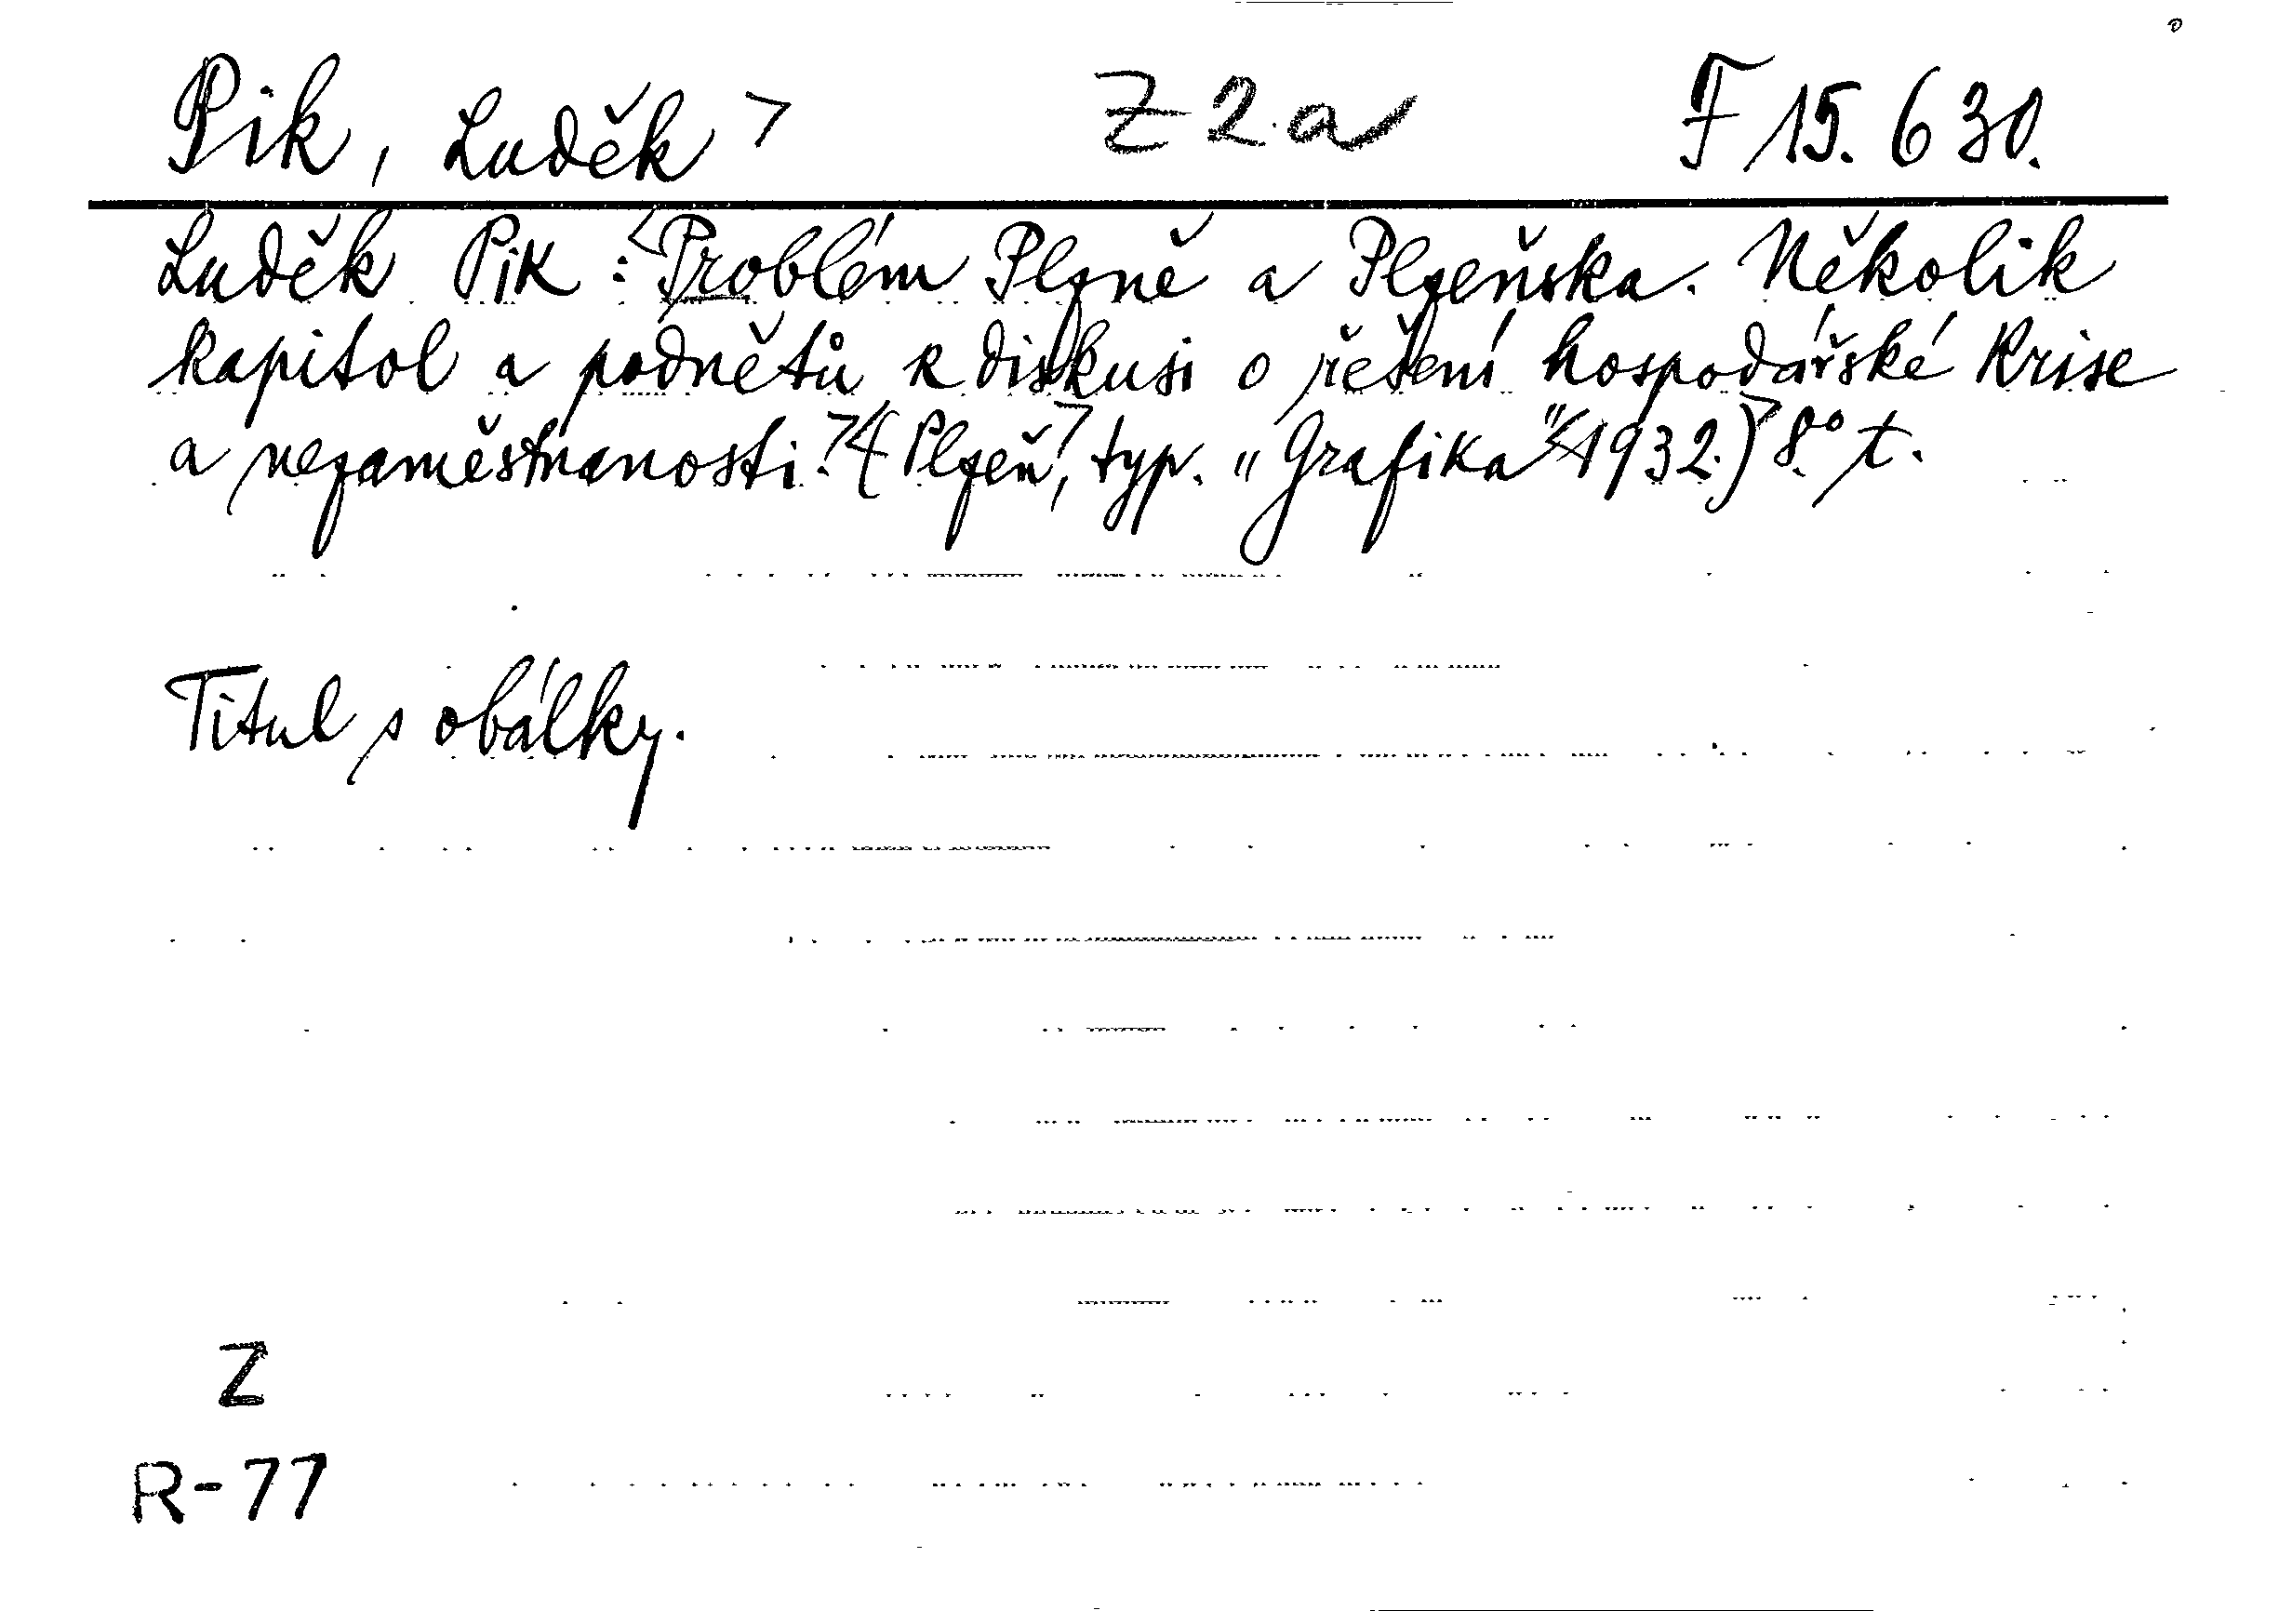 Pik, Luděk > Z 2.a F 15.630.
Luděk Pik :<Problém Plzně a Plzeňska. Několik
kapitol a podnětů k diskusi o řešení hospodářské krise
a nezaměstnanosti.>(<Plzeň>, typ. „Grafika"<1932.)> 8.° t.
Titul s obálky.
Z
R-77